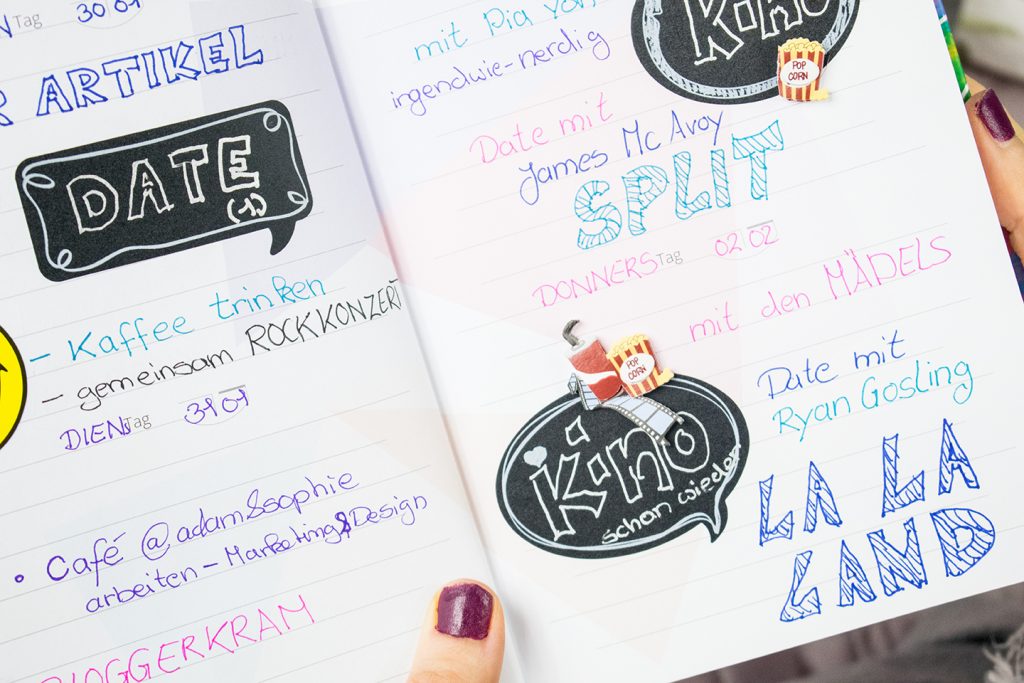 Tag 30 01
ARTIKEL
DATE
(1)
- Kaffee trinken
- gemeinsam ROCKKONZERT
DIENSTag 31 01
• Café @adam&sophie
arbeiten - Marketing & Design
BLOGGERKRAM
mit Pia von
irgendwie-nerdig
Kino
POP
CORN
Date mit
James Mc Avoy
SPLIT
DONNERSTag 02 02
mit den MÄDELS
POP
CORN
Kino
schon wieder
Date mit
Ryan Gosling
LA LA
LAND